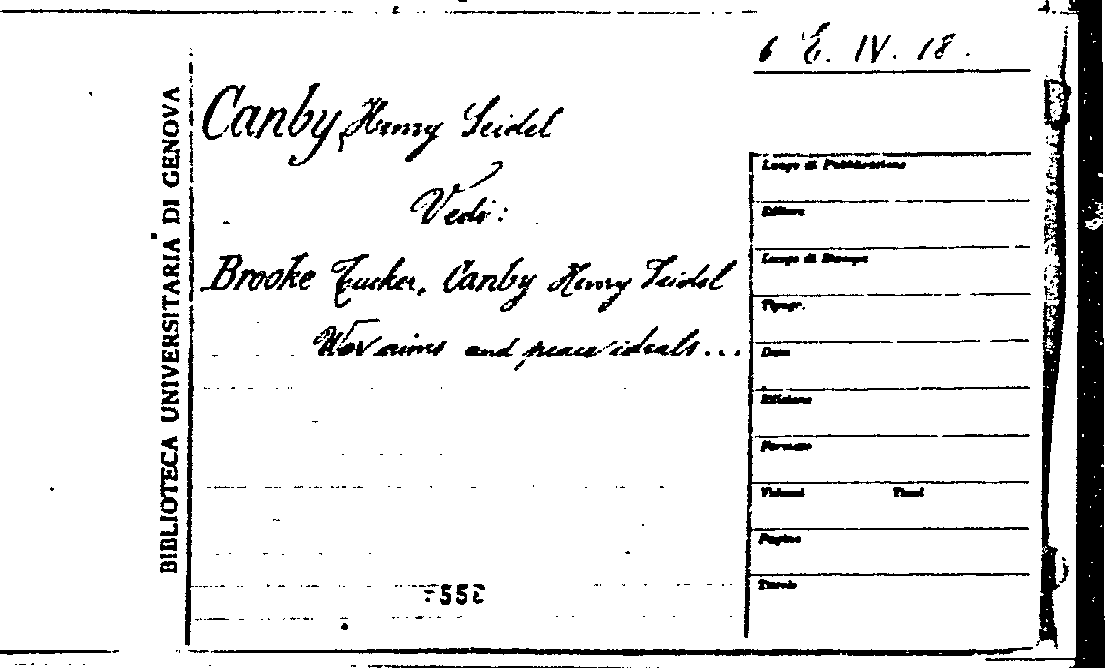 6 E. IV. 18.
BIBLIOTECA UNIVERSITARIA DI GENOVA
Canby, Henry Seidel
Vedi:
Brooke Tucker, Canby Henry Seidel
War aims and peace ideals...
Luogo di Pubblicazione
Editore
Luogo di Stampa
Tipogr.
Data
Edizione
Formato
Volumi Tomi
Pagine
Tavole